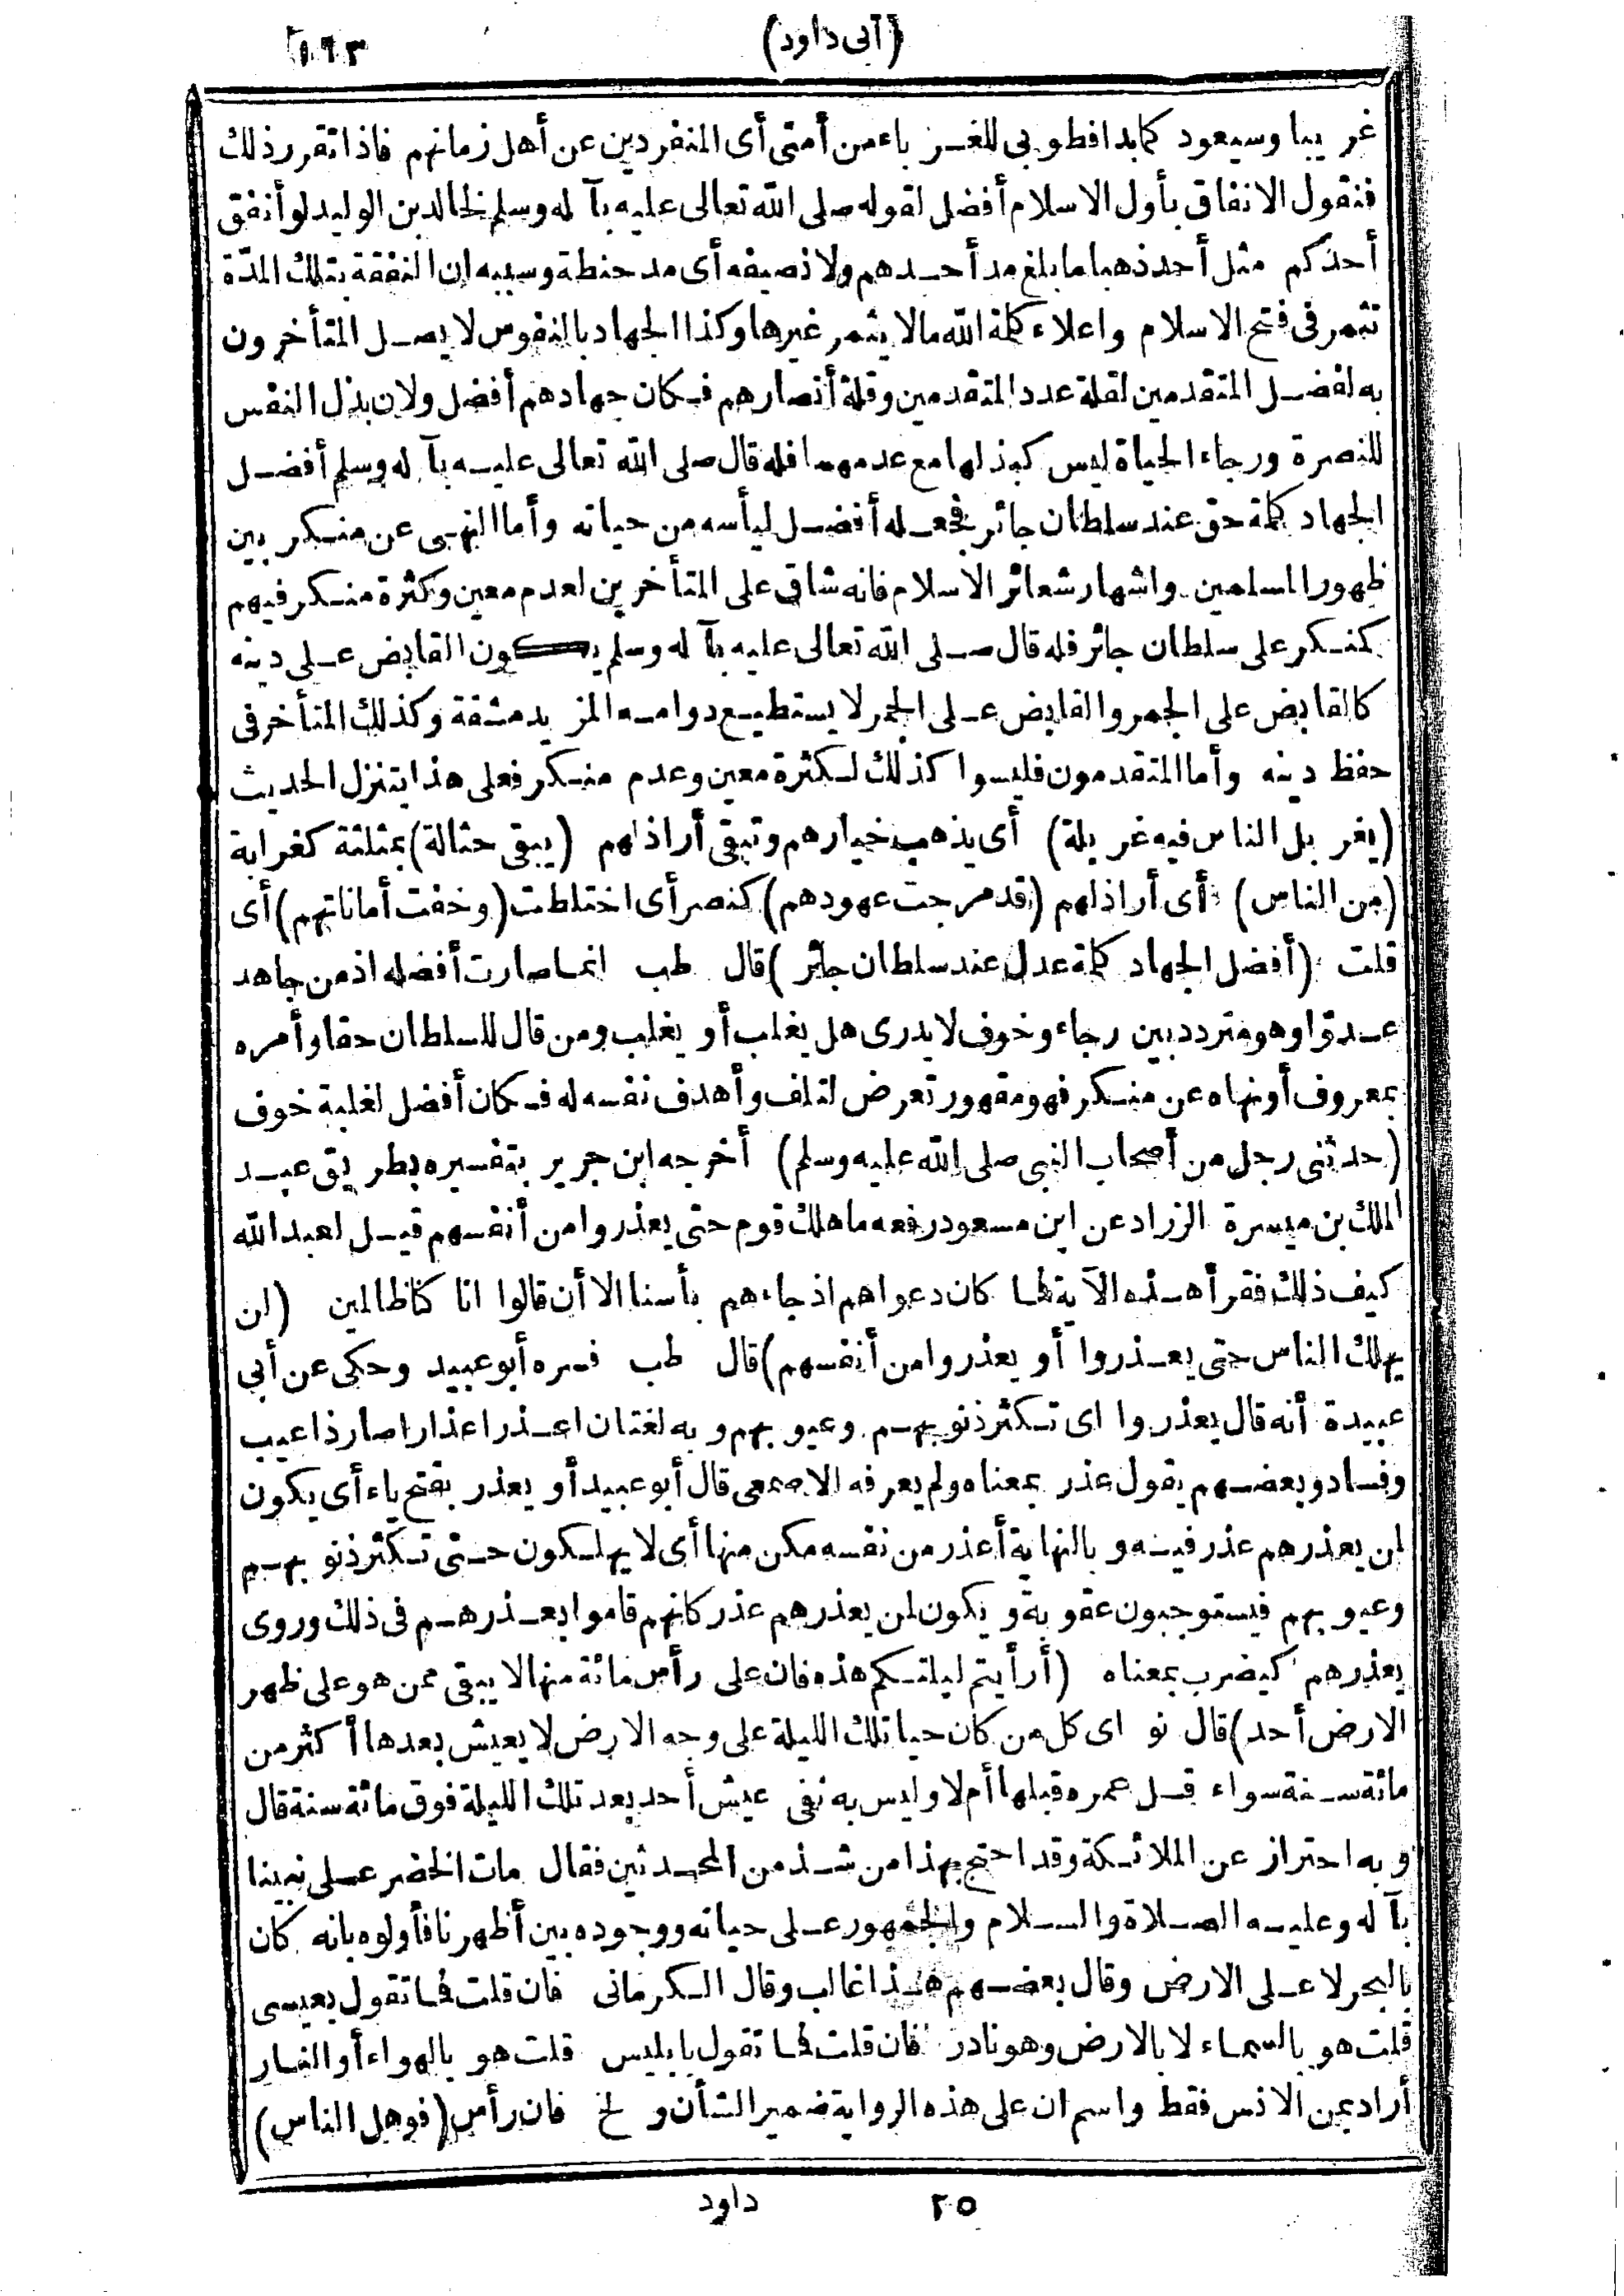 (أبى داود)
١٩٣
غريبا وسيعود كما بدا فطوبى للغرباء من أمتى أى المنفردين عن أهل زمانهم فاذا تقرر ذلك
فنقول الانفاق بأول الاسلام أفضل لقوله صلى الله تعالى عليه بآ له وسلم لخالد بن الوليد لو أنفق
أحدكم مثل أحد ذهبا ما بلغ مد أحدهم ولا نصيفه أى مد حنطة وسببه ان النفقة بتلك المدّة
تثمر فى فتح الاسلام واعلاء كلمة الله مالا يثمر غيرها وكذا الجهاد بالنفوس لا يصل المتأخرون
به لفضل المتقدمين لقلة عدد المتقدمين وقلة أنصارهم فكان جهادهم أفضل ولان بذل النفس
للنصرة ورجاء الحياة ليس كبذلها مع عدمهما فله قال صلى الله تعالى عليه بآ له وسلم أفضل
الجهاد كلمة حق عند سلطان جائر فجعله أفضل ليأسه من حياته وأما النهى عن منكر بين
ظهور المسلمين واشهار شعائر الاسلام فانه شاق على المتأخرين لعدم معين وكثرة منكر فيهم
كمنكر على سلطان جائر فله قال صلى الله تعالى عليه بآ له وسلم يكون القابض على دينه
كالقابض على الجمر والقابض على الجمر لا يستطيع دوامه المزيد مشقة وكذلك المتأخر فى
حفظ دينه وأما المتقدمون فليسوا كذلك لكثرة معين وعدم منكر فعلى هذا يتنزل الحديث
(يغربل الناس فيه غربلة) أى يذهب خيارهم وتبقى أراذلهم (يبقى حثالة) بمثلثة كغرابة
(من الناس) أى أراذلهم (قد مرجت عهودهم) كنصر أى اختلطت (وخفت أماناتهم) أى
قلت (أفضل الجهاد كلمة عدل عند سلطان جائر) قال طب انما صارت أفضله اذ من جاهد
عدوّا وهو متردد بين رجاء وخوف لا يدرى هل يغلب أو يغلب ومن قال للسلطان حقا وأمره
بمعروف أو نهاه عن منكر فهو مقهور تعرض لتلف وأهدف نفسه له فكان أفضل لغلبة خوف
(حدثنى رجل من أصحاب النبى صلى الله عليه وسلم) أخرجه ابن جرير بتفسيره بطريق عبد
الملك بن ميسرة الزراد عن ابن مسعود رفعه ما هلك قوم حتى يعذروا من أنفسهم قيل لعبد الله
كيف ذلك فقرأ هذه الآية فما كان دعواهم اذ جاءهم بأسنا الا أن قالوا انا كنا ظالمين (لن
يهلك الناس حتى يعذروا أو يعذروا من أنفسهم) قال طب فسره أبو عبيد وحكى عن أبى
عبيدة أنه قال يعذروا اى تكثر ذنوبهم وعيوبهم وبه لغتان اعذر اعذارا صار ذا عيب
وفساد وبعضهم يقول عذر بمعناه ولم يعرفه الاصمعى قال أبو عبيد أو يعذر بفتح ياء أى يكون
لمن يعذرهم عذر فيه وبالنهاية أعذر من نفسه مكن منها أى لا يهلكون حتى تكثر ذنوبهم
وعيوبهم فيستوجبون عقوبة ويكون لمن يعذرهم عذر كانهم قاموا بعذرهم فى ذلك وروى
يعذرهم كيضرب بمعناه (أرأيتم ليلتكم هذه فان على رأس مائة منها لا يبقى ممن هو على ظهر
الارض أحد) قال نو اى كل من كان حيا تلك الليلة على وجه الارض لا يعيش بعدها أكثر من
مائة سنة سواء قل عمره قبلها أم لا وليس به نفى عيش أحد بعد تلك الليلة فوق مائة سنة قال
وبه احتراز عن الملائكة وقد احتج بهذا من شذ من المحدثين فقال مات الخضر على نبينا
بآ له وعليه الصلاة والسلام والجمهور على حياته ووجوده بين أظهرنا فأولوه بانه كان
بالبحر لا على الارض وقال بعضهم هذا غالب وقال الكرمانى فان قلت فما تقول بعيسى
قلت هو بالسماء لا بالارض وهو نادر فان قلت فما تقول بابليس قلت هو بالهواء أو النار
أراد بمن الانس فقط واسم ان على هذه الرواية ضمير الشأن و لخ فان رأس (فوهل الناس)
٢٥ داود